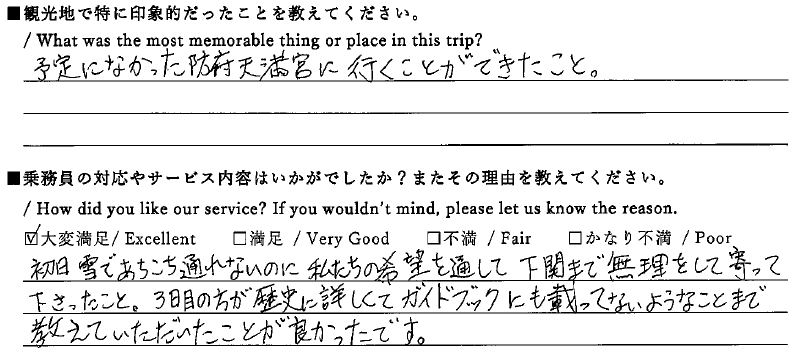 ■観光地で特に印象的だったことを教えてください。
/ What was the most memorable thing or place in this trip?
予定になかった防府天満宮に行くことができたこと。
■乗務員の対応やサービス内容はいかがでしたか?またその理由を教えてください。
/ How did you like our service? If you wouldn't mind, please let us know the reason.
☑大変満足/ Excellent □満足 / Very Good □不満 / Fair □かなり不満 / Poor
初日雪であちこち通れないのに私たちの希望を通して下関まで無理をして寄って
下さったこと。3日目の方が歴史に詳しくてガイドブックにも載ってないようなことまで
教えていただいたことが良かったです。